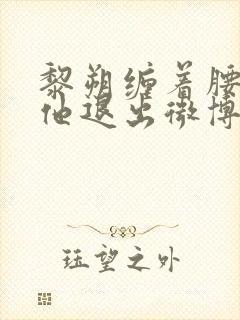 黎朔缠着腰
他退出微博
珏望之外